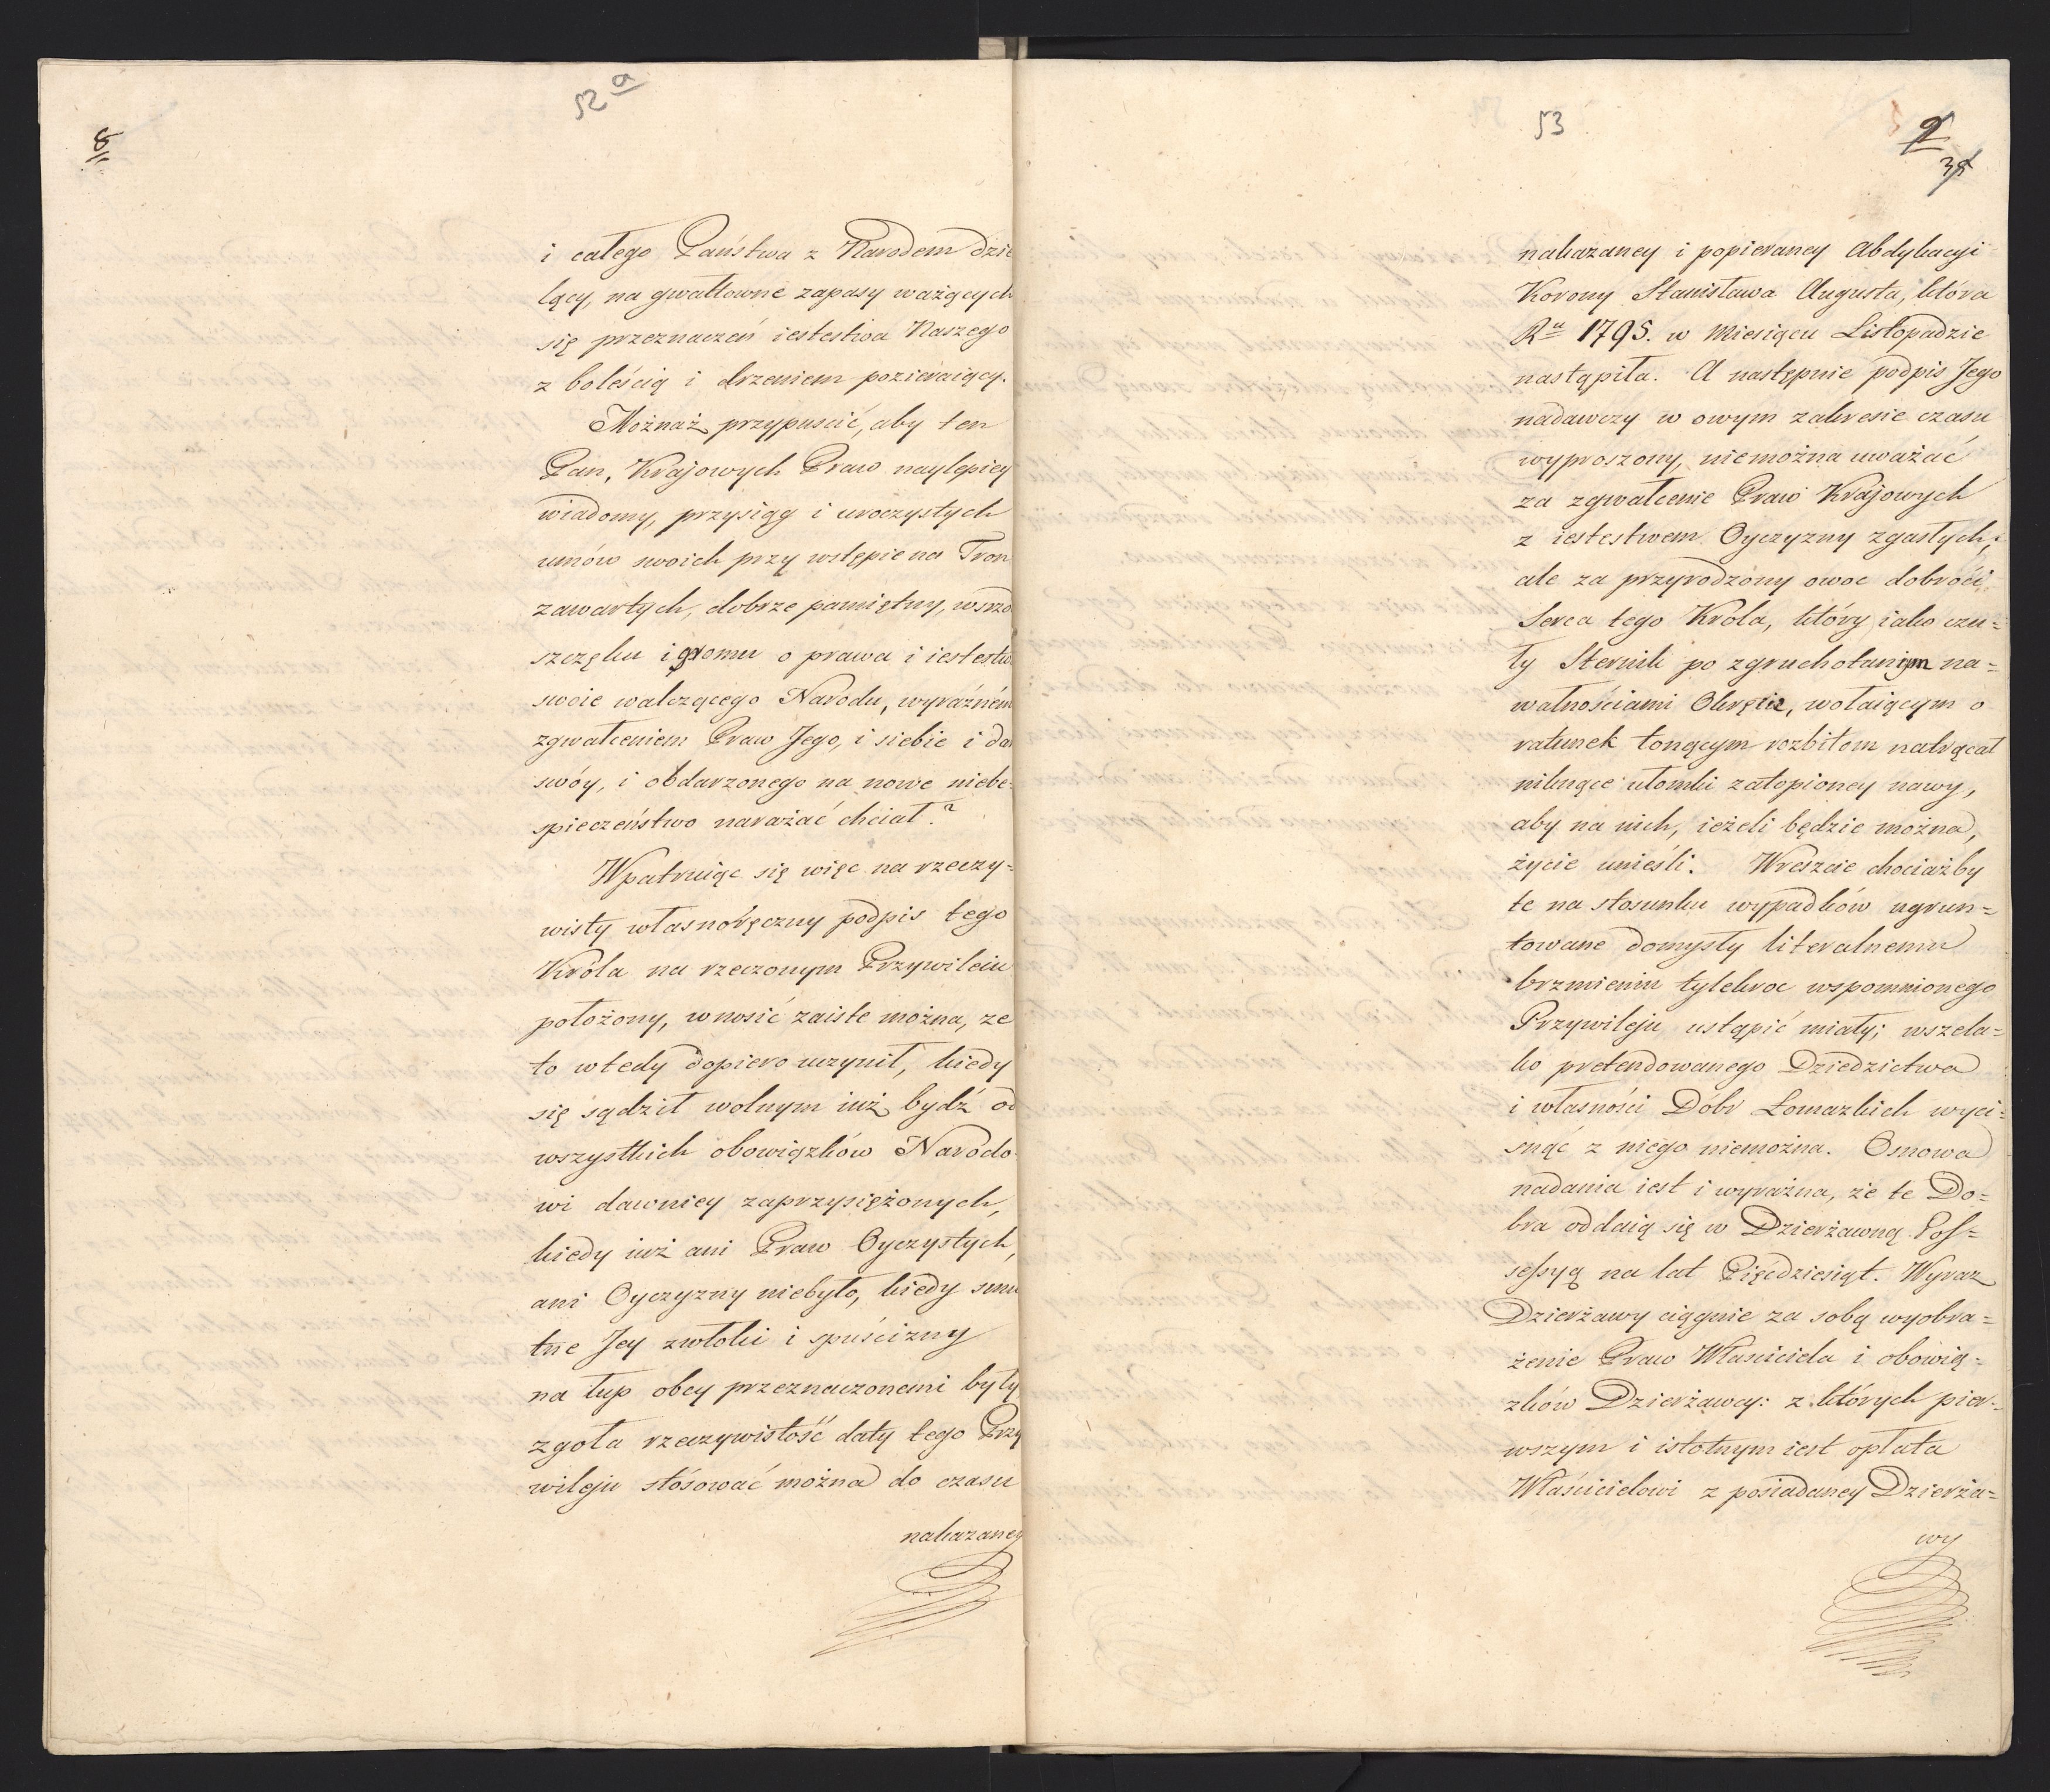 52 a
8
i całego Państwa z Narodem dzie
lący, na gwałtowne zapasy ważących
się przeznaczeń iestestwa Naszego
z boleścią i drzeniem pozieraiący.
Możnaż przypuścić, aby ten
Pan, Krajowych Praw naylepiey
wiadomy, przysiąg i uroczystych
umów swoich przy wstępie na Tron
zawartych, dobrze pamiętny, wśrzo
szczęku i gromu o prawa i iestestwo
swoie walczącego Narodu, wyraźném
zgwałceniem Praw Jego, i siebie i dar
swóy, i obdarzonego na nowe niebe=
spieczeństwo narażać chciał?
Wpatruiąc się więc na rzeczy=
wisty własnoręczny podpis tego
Króla na rzeczonym Przywileiu
położony, wnosić zaiste można, ze
to wtedy dopiero uczynił, kiedy
się sądził wolnym iuż bydź od
wszystkich obowiązków Narodo
wi dawniey zaprzysiężonych,
kiedy iuż ani Praw Oyczystych,
ani Oyczyzny niebyło, kiedy smu
tne Jey zwłoki i spuścizny
na łup obcy przeznaczonemi były
zgoła rzeczywistość daty tego Przy
wileju stósować można do czasu
nakazaney
53
9
nakazaney i popieraney Abdykacyi
Korony Stanisława Augusta, która
Ru 1795. w Miesiącu Listopadzie
nastąpiła. A następnie podpis Jego
nadawczy w owym zakresie czasu
wyproszony, niemożna uważać
za zgwałcenie Praw Krajowych
z iestestwem Oyczyzny zgasłych,
ale za przyrodzony owoc dobroći
Serca tego Króla, który iako czu=
ły Sternik po zgruchotanym na=
wałnościami Okręcie, wołaiącym o
ratunek tonącym rozbitom natrącał
niknące ułomki zatopioney nawy,
aby na nich, ieżeli będzie można,
życie unieśli. Wreszcie chociażby
te na stosunku wypadków ugrun=
towane domysły literalnemu
brzmieniu tylekroc wspomnionego
Przywileju ustąpić miały; wszela=
ko pretendowanego Dziedzictwa
i własności Dóbr Łomazkich wyci=
snąć z niego niemożna. Osnowa
nadania iest i wyraźna, że te Do=
bra oddaią się w Dzierżawną Pos=
sessyą na lat Pięćdziesiąt. Wyraz
Dzierżawy ciągnie za sobą wyobra=
żenie Praw Właściciela i obowią=
zków Dzierżawcy: z których pier=
wszym i istotnym iest opłata
Właścicielowi z posiadaney Dzierża=
wy